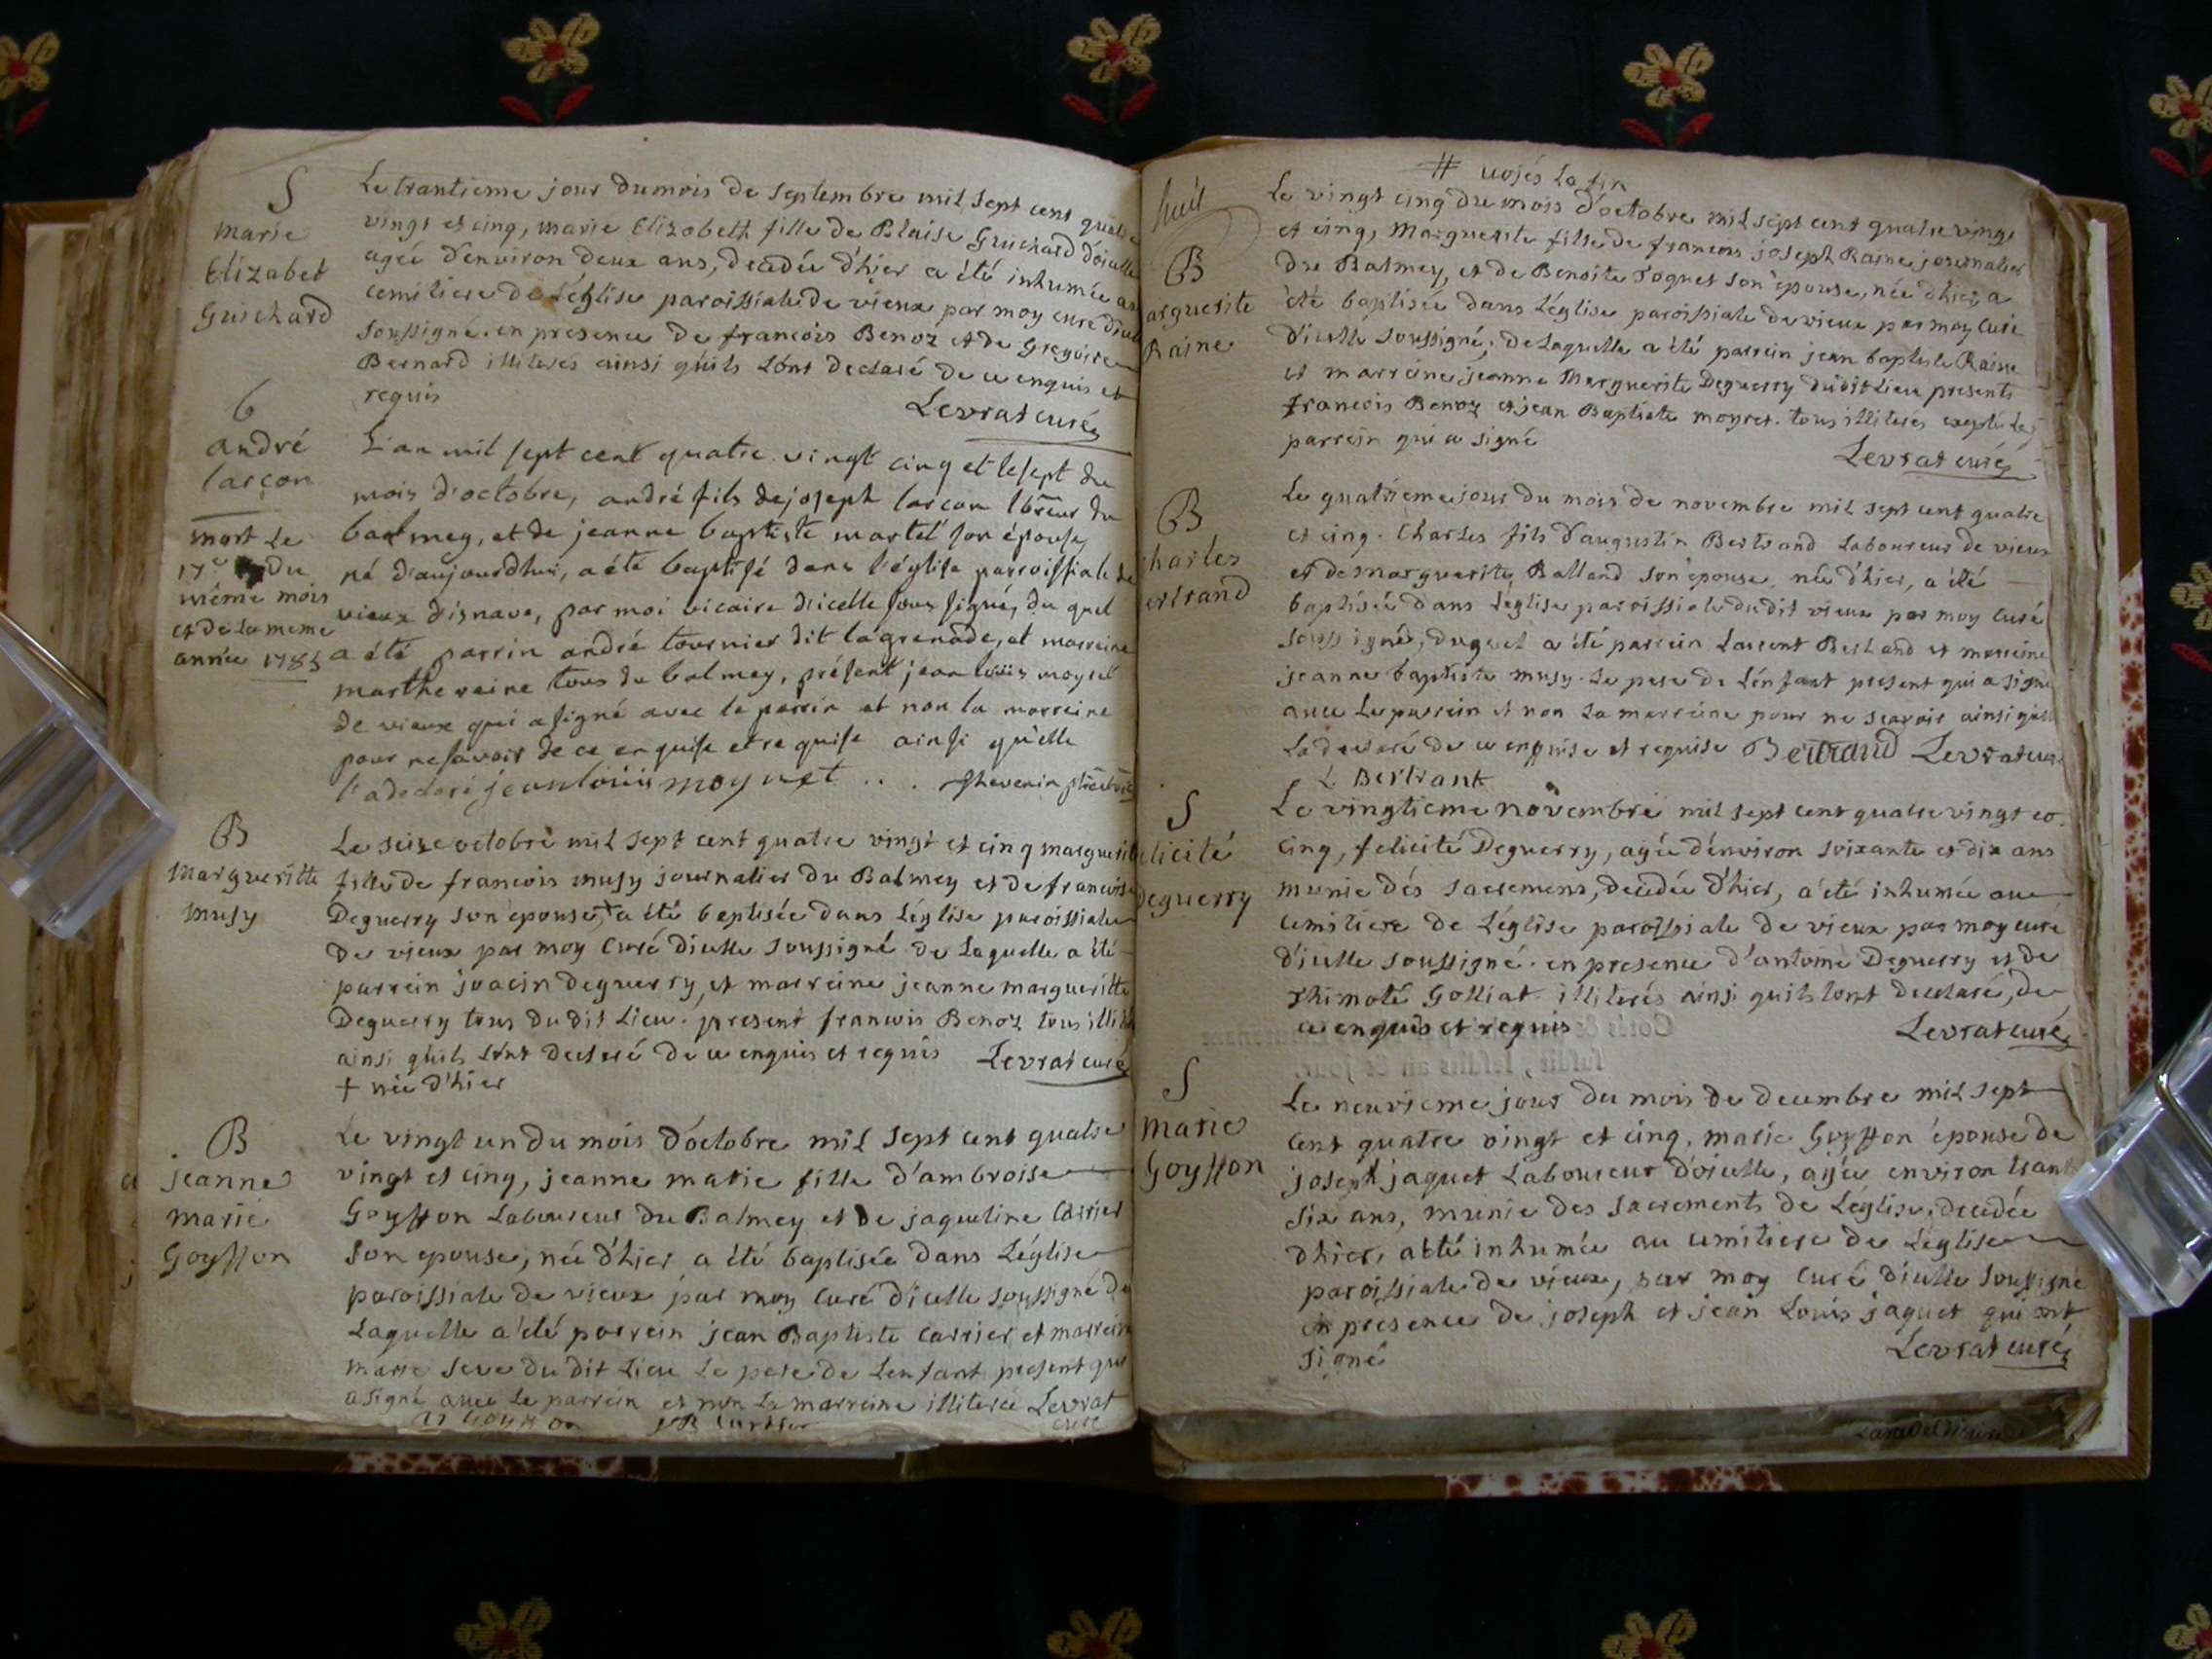 S
marie
Elizabet
Guichard
Le trantieme jour du mois de septembre mil sept cent quatre
vingt et cinq, marie Elizabeth fille de Blaise Guichard d'oiselle
agée d'environ deux ans, decedée d'hier a été inhumée au
cemitiere de L'église paroissiale de vieux par moy curé
soussigné. en presence de francois Benoz et de Gregoire
Bernard illiterés ainsi qu'ils L'ont declaré de ce enquis et
requis
Levrat curé
6
andré
larçon
mort Le
17e du
même mois
et de La meme
année 1785
L'an mil sept cent quatre vingt cinq et le sept du
mois d'octobre, andré fils de joseph larçon lbreur du
balmey, et de jeanne baptiste martel son épouse,
né d'aujourdhui, a été baptisé dans l'église parroissiale de
vieux d'isnave, par moi vicaire d'icelle sous signé, du quel
a été parrin andré tournier dit la grenade, et marreine
marthe reine tous du balmey, présent jean louis moyret
de vieux qui a signé avec le parrin et non la marreine
pour ne savoir de ce enquise et requise ainsi qu'elle
l'a declaré jean louis moyret
B
Margueritte
musy
Le seize octobre mil sept cent quatre vingt et cinq marguerite
fille de francois musy journalier du Balmey et de francoise
Deguerry son épouse, + a été baptisée dans L'église paroissiale
de vieux par moy Curé d'icelle soussigné de Laquelle a été
parrein joacin deguerry, et marreine jeanne margueritte
Deguerry tous du dit Lieu. present francois Benoz tous
ainsi qu'ils L'ont declaré de ce enquis et requis Levrat curé
+ née d'hier
B
jeanne
marie
Goyffon
Le vingt un du mois d'octobre mil sept cent quatre
vingt et cinq, jeanne marie fille d'ambroise
Goyffon Laboureur du Balmey et de jaqueline Carrier
son epouse, née d'hier a été baptisée dans L'église
paroissiale de vieux par moy Curé d'icelle soussigné de
Laquelle a été parrein jean Baptiste Carrier et marreine
marie seve du dit Lieu Le pere de L'enfant present qui
a signé avec Le parrein et non La marreine illiterée Levrat
curé
a Goyffon JB Carrier
huit
# voiés la fin
B
arguerite
Raine
Le vingt cinq du mois d'octobre mil sept cent quatre vingt
et cinq, Marguerite fille de francois joseph Raine journalier
du Balmey, et de Benoite Tognet son épouse, née d'hier, a
été baptisée dans L'église paroissiale de vieux par moy Curé
d'icelle soussigné; de Laquelle a été parrein jean baptiste Raine
et marreine jeanne Marguerite Deguerry dudit Lieu presents
francois Benoz et jean Baptiste moyret. tous illiterés excepté Le
parrein qui a signé
Levrat curé
B
harles
ertrand
Le quatrieme jour du mois de novembre mil sept cent quatre
et cinq. Charles fils d'augustin Bertrand Laboureur de vieux
et de marguerite Balland son épouse, née d'hier, a été
baptisée dans L'église paroissiale du dit vieux par moy Curé
soussigné, duquel a été parrein Laurent Bertrand et marreine
jeanne baptiste musy. Le pere de L'enfant present qui a signé
avec Le parrein et non La marreine pour ne scavoir ainsi qu'elle
La declaré de ce enquise et requise Bertrand Levrat curé
L Bertrant
S
elicité
deguerry
Le vingtieme novembre mil sept cent quatre vingt et
Cinq, felicité Deguerry, agée d'environ soixante et dix ans
munie dés sacremens, decedée d'hier, a été inhumée au
cemitiere de L'église paroissiale de vieux par moy curé
d'icelle soussigné. en presence d'antoine Deguerry et de
thimoté Golliat. illiterés ainsi quils L'ont declaré, de
ce enquis et requis
Levrat curé
S
Marie
Goyffon
Le neuvieme jour du mois de decembre mil sept
Cent quatre vingt et cinq, marie Goyffon épouse de
joseph jaquet Laboureur d'oiselle, agée environ trant
six ans, munie des sacrements de L'eglise, decedée
d'hier, a été inhumée au cemitiere de L'eglise
paroissiale de vieux, par moy Curé d'icelle soussigné
en presence de joseph et jean Louis jaquet qui ont
signé
Levrat curé